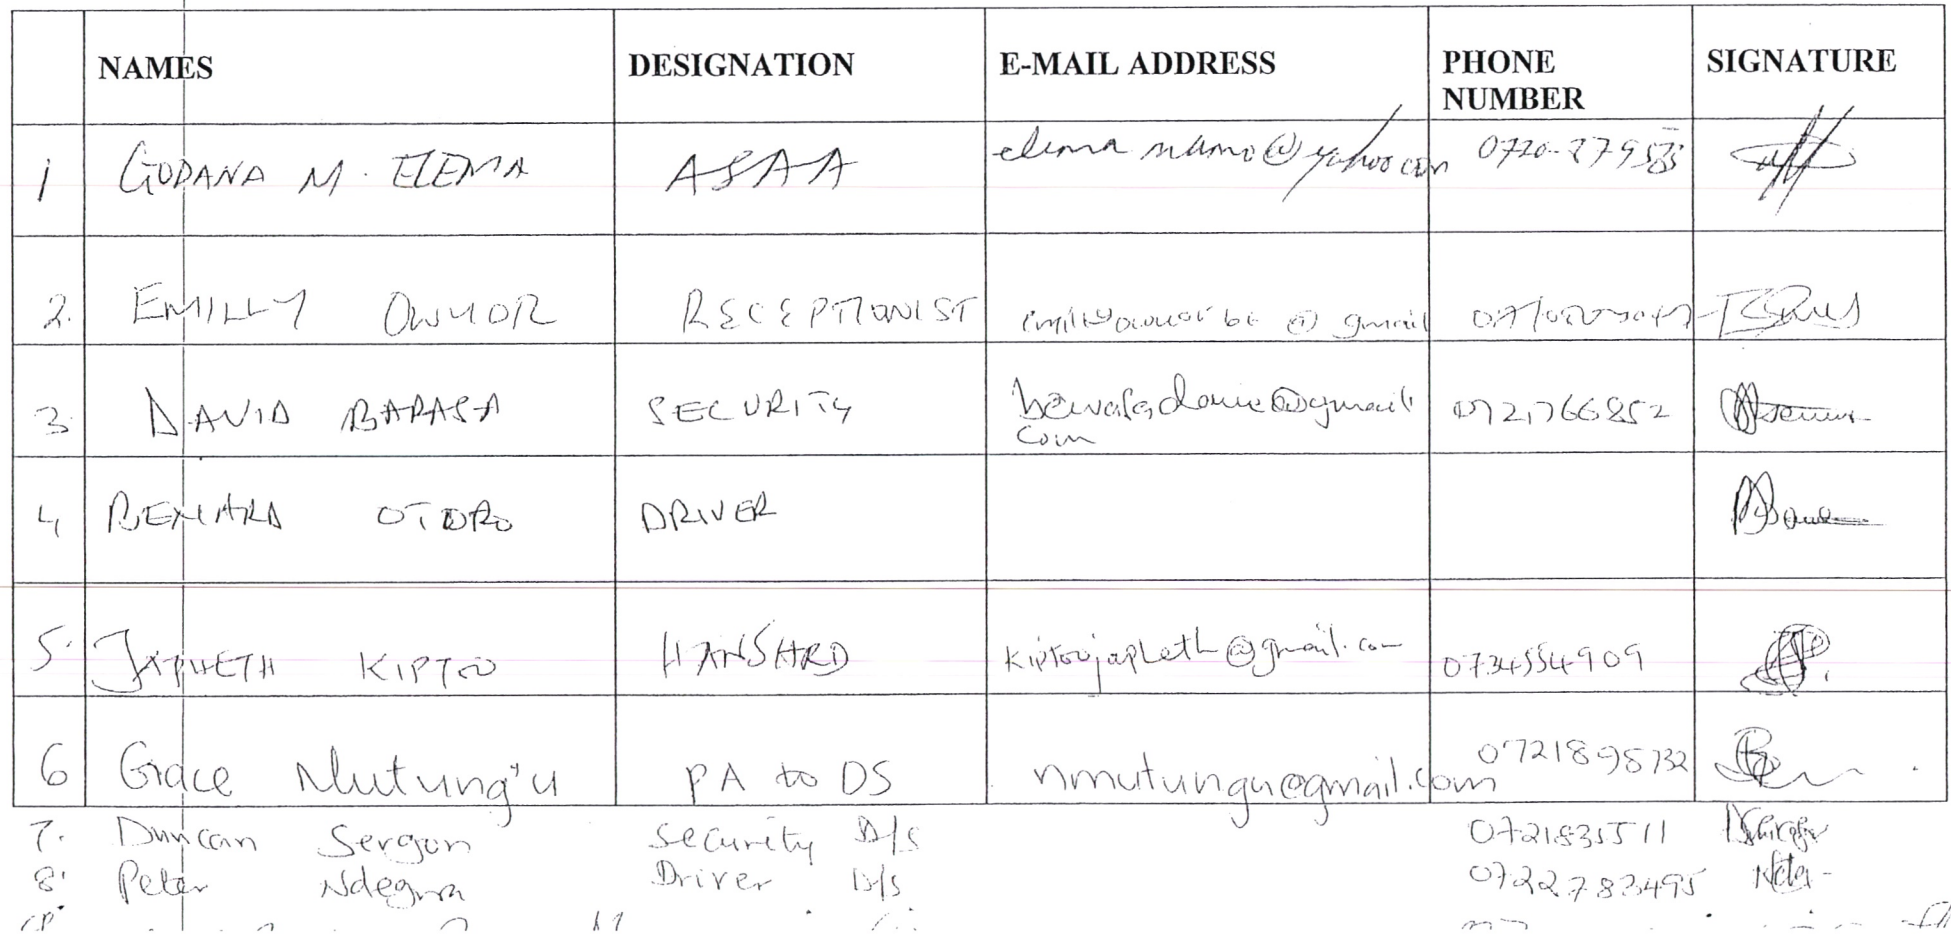 NAMES DESIGNATION E-MAIL ADDRESS PHONE NUMBER SIGNATURE
1 GODANA M. ELEMA ASAA elema mamo@yahoo com
2. EMILLY OWUOR RECEPTIONIST @ gmail
3. DAVID BARASA SECURITY 0721766852
4 BENARD OTORO DRIVER
5. JAPHETH KIPTOO HANSARD kiptoojapheth@gmail.com 0734554909
6 Grace Mutung'u PA to DS nmutungu@gmail.com 0721898732
7. Duncan Sergon Security D/S 0721835511
8. Peter Ndegwa Driver D/S 0722783495